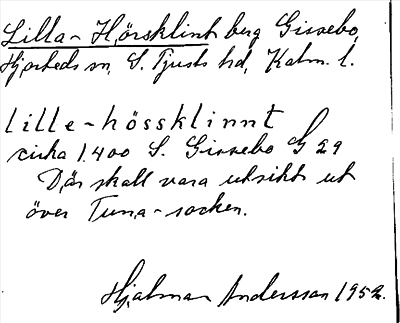 Lilla-Hörsklint berg Gissebo,
Hjorteds sn, S. Tjusts hd, Kalm. l.
lille-hössklinnt
cirka 1.400 S. Gissebo G 29
Där skall vara utsikt ut
över Tuna-socken.
Hjalmar Andersson 1952.